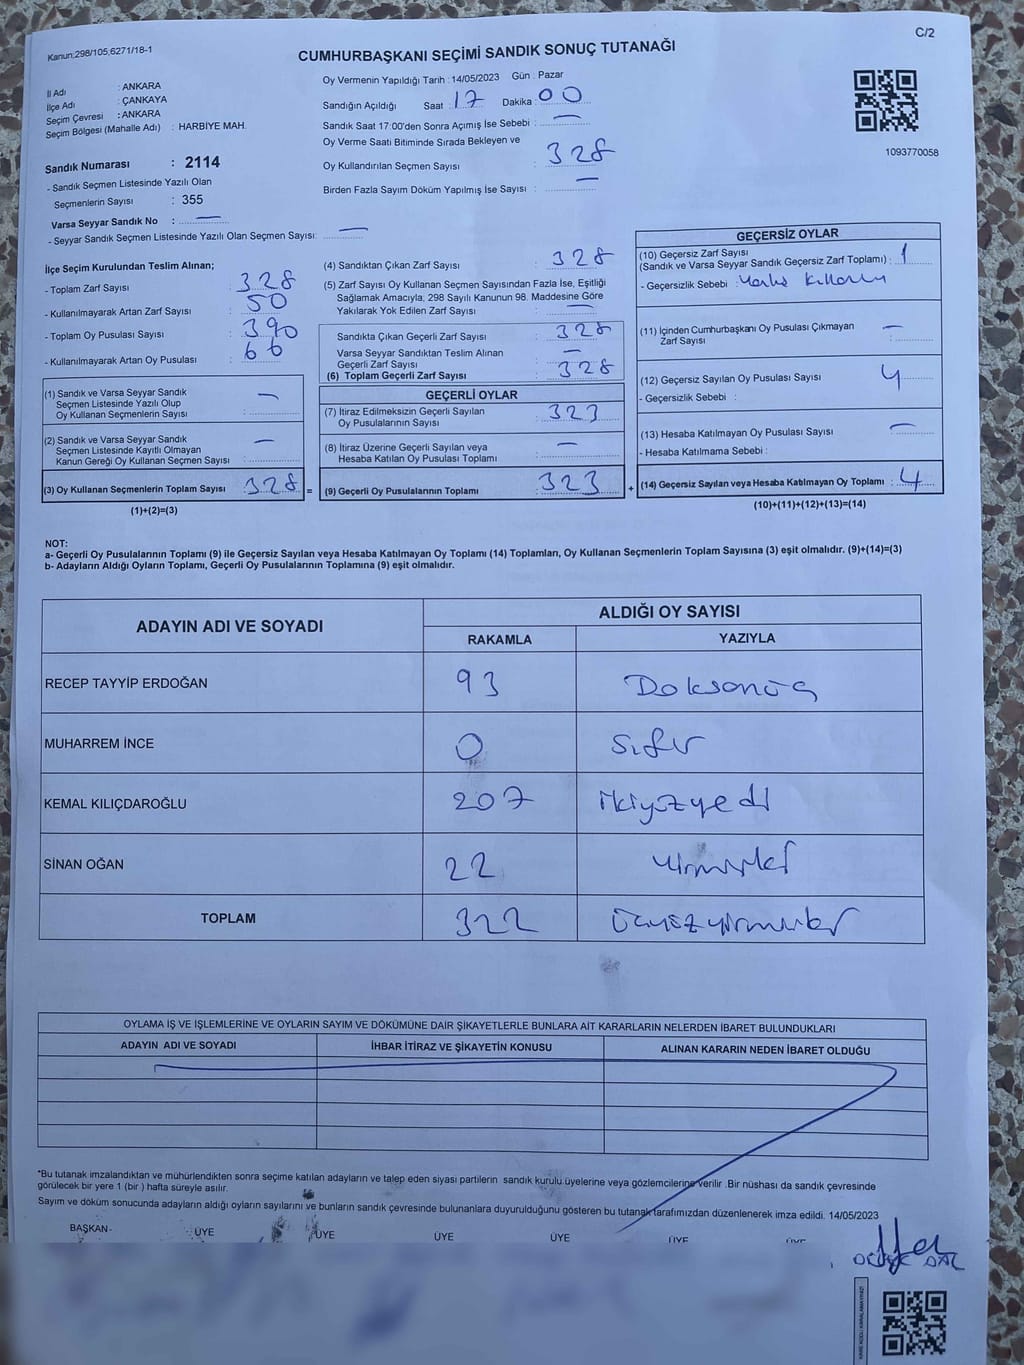 Kanun:298/105,6271/18-1
C/2
CUMHURBAŞKANI SEÇİMİ SANDIK SONUÇ TUTANAĞI
İl Adı : ANKARA
İlçe Adı : ÇANKAYA
Seçim Çevresi : ANKARA
Seçim Bölgesi (Mahalle Adı) : HARBİYE MAH.
Oy Vermenin Yapıldığı Tarih : 14/05/2023 Gün : Pazar
Sandığın Açıldığı Saat : 17 Dakika : 00
Sandık Saat 17:00'den Sonra Açımış İse Sebebi : —
Oy Verme Saati Bitiminde Sırada Bekleyen ve
Oy Kullandırılan Seçmen Sayısı : 328
Birden Fazla Sayım Döküm Yapılmış İse Sayısı : —
1093770058
Sandık Numarası : 2114
- Sandık Seçmen Listesinde Yazılı Olan
Seçmenlerin Sayısı : 355
Varsa Seyyar Sandık No : —
- Seyyar Sandık Seçmen Listesinde Yazılı Olan Seçmen Sayısı: —
İlçe Seçim Kurulundan Teslim Alınan;
- Toplam Zarf Sayısı : 328
- Kullanılmayarak Artan Zarf Sayısı : 50
- Toplam Oy Pusulası Sayısı : 390
- Kullanılmayarak Artan Oy Pusulası : 66
(1) Sandık ve Varsa Seyyar Sandık
Seçmen Listesinde Yazılı Olup
Oy Kullanan Seçmenlerin Sayısı : —
(2) Sandık ve Varsa Seyyar Sandık
Seçmen Listesinde Kayıtlı Olmayan
Kanun Gereği Oy Kullanan Seçmen Sayısı : —
(3) Oy Kullanan Seçmenlerin Toplam Sayısı : 328 =
(1)+(2)=(3)
(4) Sandıktan Çıkan Zarf Sayısı : 328
(5) Zarf Sayısı Oy Kullanan Seçmen Sayısından Fazla İse, Eşitliği
Sağlamak Amacıyla, 298 Sayılı Kanunun 98. Maddesine Göre
Yakılarak Yok Edilen Zarf Sayısı : —
Sandıkta Çıkan Geçerli Zarf Sayısı : 328
Varsa Seyyar Sandıktan Teslim Alınan
Geçerli Zarf Sayısı : —
(6) Toplam Geçerli Zarf Sayısı : 328
GEÇERLİ OYLAR
(7) İtiraz Edilmeksizin Geçerli Sayılan
Oy Pusulalarının Sayısı : 323
(8) İtiraz Üzerine Geçerli Sayılan veya
Hesaba Katılan Oy Pusulası Toplamı : —
(9) Geçerli Oy Pusulalarının Toplamı : 323 +
GEÇERSİZ OYLAR
(10) Geçersiz Zarf Sayısı
(Sandık ve Varsa Seyyar Sandık Geçersiz Zarf Toplamı) : 1
- Geçersizlik Sebebi :
(11) İçinden Cumhurbaşkanı Oy Pusulası Çıkmayan
Zarf Sayısı : —
(12) Geçersiz Sayılan Oy Pusulası Sayısı : 4
- Geçersizlik Sebebi :
(13) Hesaba Katılmayan Oy Pusulası Sayısı : —
- Hesaba Katılmama Sebebi :
(14) Geçersiz Sayılan veya Hesaba Katılmayan Oy Toplamı : 4
(10)+(11)+(12)+(13)=(14)
NOT:
a- Geçerli Oy Pusulalarının Toplamı (9) ile Geçersiz Sayılan veya Hesaba Katılmayan Oy Toplamı (14) Toplamları, Oy Kullanan Seçmenlerin Toplam Sayısına (3) eşit olmalıdır. (9)+(14)=(3)
b- Adayların Aldığı Oyların Toplamı, Geçerli Oy Pusulalarının Toplamına (9) eşit olmalıdır.
ADAYIN ADI VE SOYADI
ALDIĞI OY SAYISI
RAKAMLA YAZIYLA
RECEP TAYYİP ERDOĞAN 93 Doksanüç
MUHARREM İNCE 0 Sıfır
KEMAL KILIÇDAROĞLU 207 ikiyüzyedi
SİNAN OĞAN 22 yirmiiki
TOPLAM 322 üçyüzyirmiiki
OYLAMA İŞ VE İŞLEMLERİNE VE OYLARIN SAYIM VE DÖKÜMÜNE DAİR ŞİKAYETLERLE BUNLARA AİT KARARLARIN NELERDEN İBARET BULUNDUKLARI
ADAYIN ADI VE SOYADI İHBAR İTİRAZ VE ŞİKAYETİN KONUSU ALINAN KARARIN NEDEN İBARET OLDUĞU
*Bu tutanak imzalandıktan ve mühürlendikten sonra seçime katılan adayların ve talep eden siyasi partilerin sandık kurulu üyelerine veya gözlemcilerine verilir .Bir nüshası da sandık çevresinde
görülecek bir yere 1 (bir ) hafta süreyle asılır.
Sayım ve döküm sonucunda adayların aldığı oyların sayılarını ve bunların sandık çevresinde bulunanlara duyurulduğunu gösteren bu tutanak tarafımızdan düzenlenerek imza edildi. 14/05/2023
BAŞKAN ÜYE ÜYE ÜYE ÜYE ÜYE ÜYE